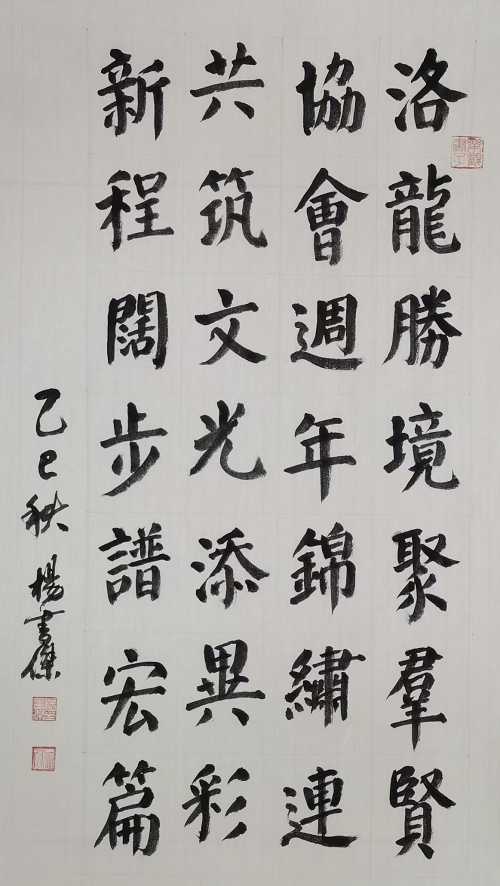 洛龍勝境聚羣賢
協會週年錦繡連
共筑文光添異彩
新程闊步譜宏篇
乙巳秋楊書傑